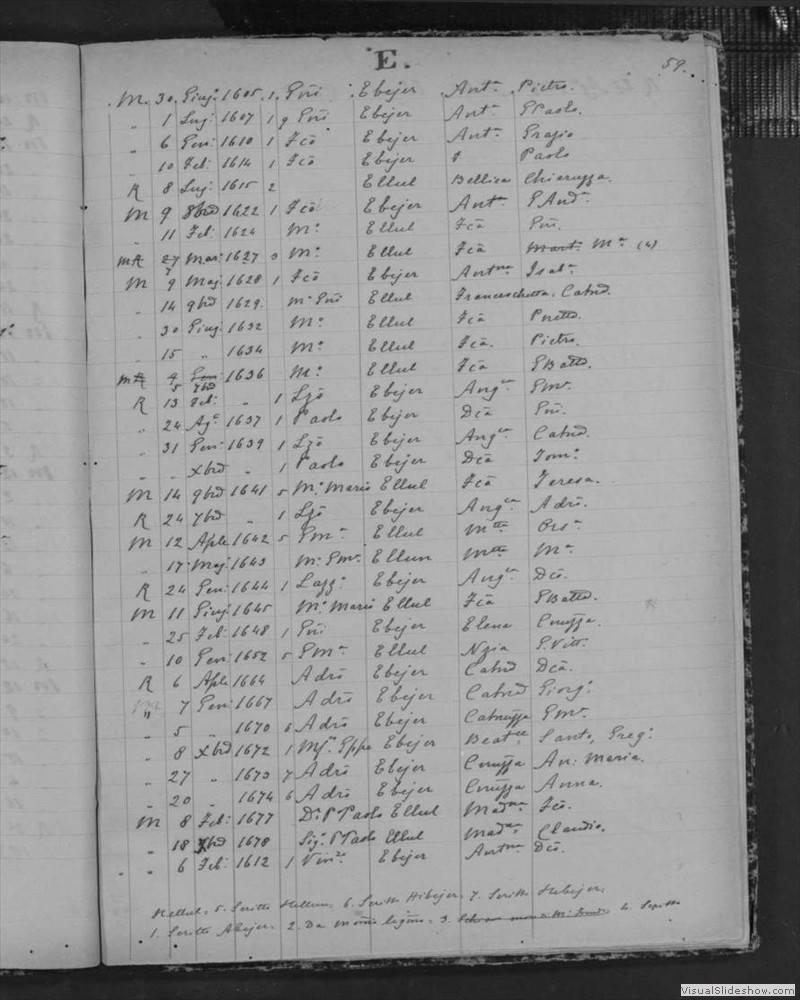 E.
59.
M. 30. Giug: 1605. 1. Gio̅i Ebejer Ant.a Pietro.
" 1 Lug: 1607 1 9 Gio̅i Ebejer Ant.a GPaolo.
" 6 Gen: 1610 1 Fco̅ Ebejer Ant.a Grazio
" 10 Feb: 1614 1 Fco̅ Ebejer Paolo
R 8 Lug: 1615 2 Ellul Bellica Chieruzza.
M 9 8bre 1622 1 Fco̅ Ebejer Ant.a GAnd.a
" 11 Feb: 1624 M.o Ellul Fca̅ Gio̅i.
27 Mar: 1627 3 M.o Ellul Fca̅ M.a (4)
M 9 Mag: 1628 1 Fco̅ Ebejer Ant.na Isab.a
" 14 9bre 1629. M.o Gio̅i Ellul Franceschetta. Catne̅.
" 30 Giug: 1632 M.o Ellul Fca̅
" 15 " 1634 M.o Ellul Fca̅. Pietro.
5 7bre 1636 M.o Ellul Fca̅ GBatta.
R 13 Feb: " 1 Lzo̅ Ebejer Ang.ca Gm.a
" 24 Ag.o 1637 1 Paolo Ebejer Dca̅ Gio̅i.
" 31 Gen: 1639 1 Lzo̅ Ebejer Ang.ca Catne̅.
" " Xbre " 1 Paolo Ebejer Dca̅ Tom.o
M 14 9bre 1641 5 M.o Mario Ellul Fca̅ Teresa.
R 24 7bre " 1 Lzo̅ Ebejer Ang.ca Adro̅.
M 12 Aple 1642 5 Gm.o Ellul M.tta Ors.a
" 17 Mag: 1643 M.o Gm.o Ellun M.tta M.a
R 24 Gen: 1644 1 Lazz.o Ebejer Ang.ca Dco̅.
M 11 Giug: 1645 M.o Mario Ellul Fca̅ GBatta.
" 25 Feb: 1648 1 Gio̅i Ebejer Elena Cnuzza.
" 10 Gen: 1652 5 Gm.o Ellul Nzia G.Vitt.
R 6 Aple 1664 Adro̅ Ebejer Catne̅ Dca̅.
" 7 Gen: 1667 Adro̅ Ebejer Catne̅ Giorg.o
" 5 " 1670 6 Adro̅ Ebejer Catnuzza Gm.a
" 8 Xbre 1672 1 Gppe Ebejer Beat.ce Santo, Greg.o
" 27 " 1673 7 Adro̅ Ebejer Cnuzza An: Maria.
" 20 " 1674 6 Adro̅ Ebejer Cnuzza Anna.
M 8 Feb: 1677 D.r P Paolo Ellul Mad.na Fco̅.
" 18 Xbre 1678 Sig.r P Paolo Ellul Mad.na Claudio.
" 6 Feb: 1612 1 Vin.zo Ebejer Ant.na Dco̅.
Hellul. 5. Scritto Hellun. 6. Scritto Hibejer. 7. Scritto Hebejer.
1. Scritto Abejer. 2. Da 3. 4. Scritto
VisualSlideshow.com